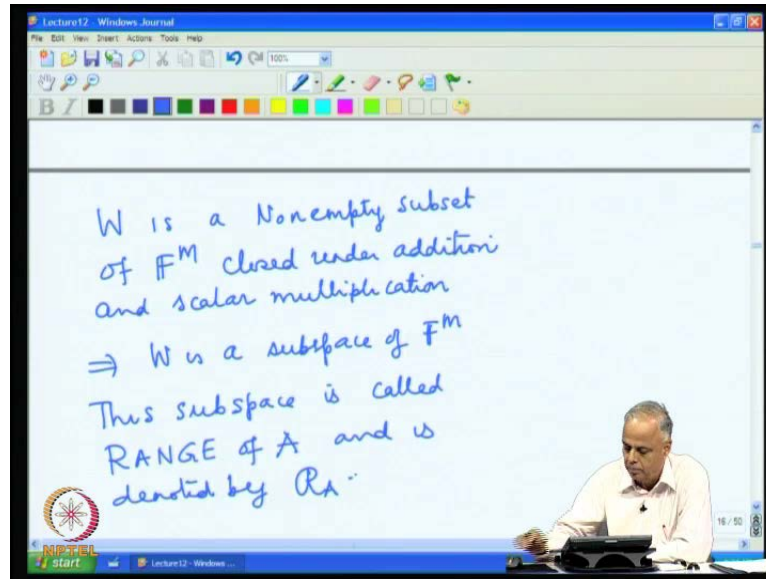 Lecture12 - Windows Journal
File Edit View Insert Actions Tools Help
100%
B I
W is a Nonempty subset
of F^m closed under addition
and scalar multiplication
⇒ W is a subspace of F^m
This subspace is called
RANGE of A and is
denoted by R_A.
16 / 50
NPTEL
start Lecture12 - Windows ...